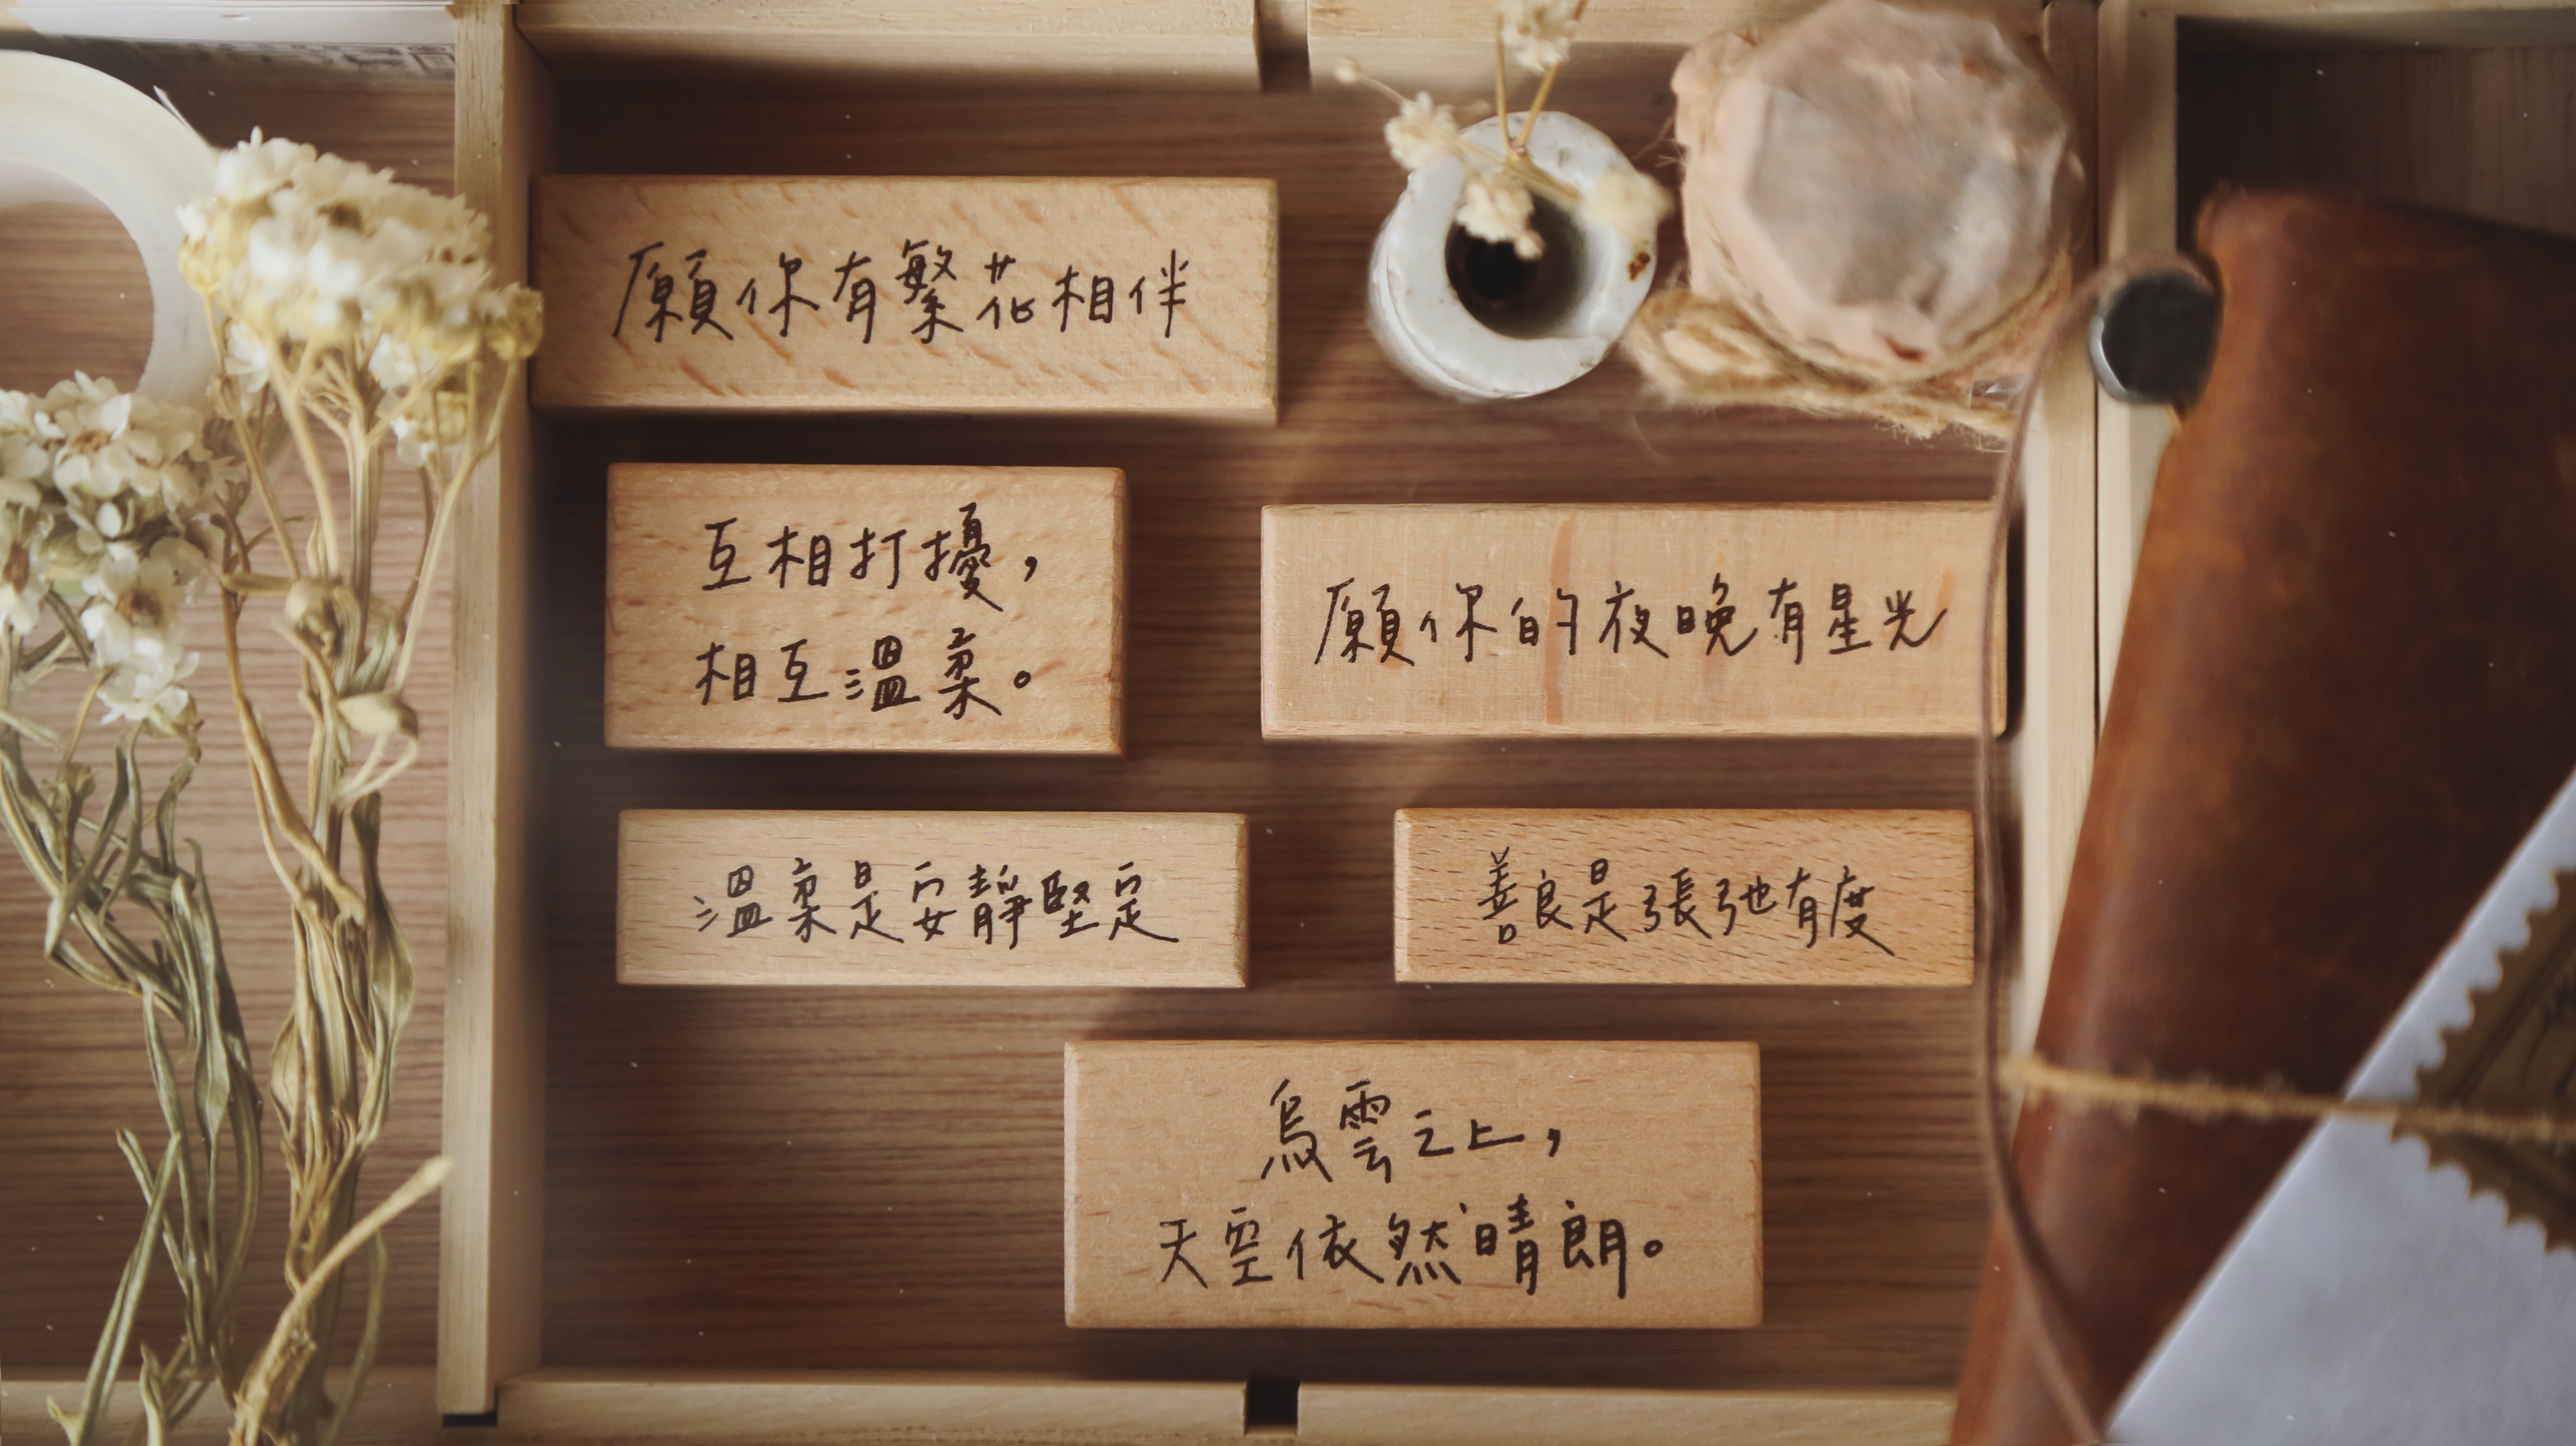 願你有繁花相伴
互相打擾，
相互溫柔。
願你的夜晚有星光
溫柔是安靜堅定
善良是張弛有度
烏雲之上，
天空依然晴朗。